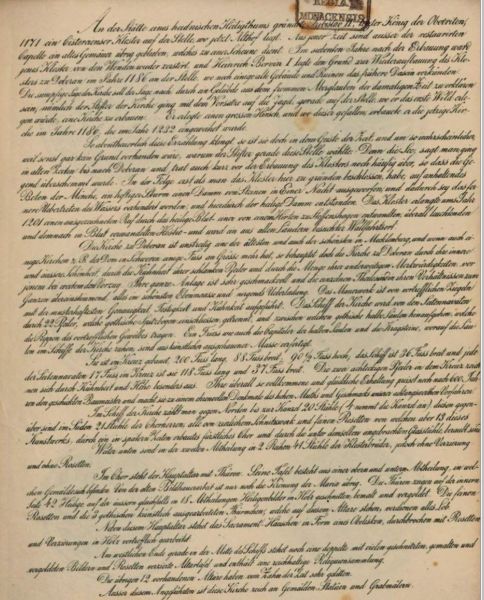 An der Stätte eines heidnischen Heiligthums gründete Pribislav II. erster König der Obotriten,
1171 ein Cisterzienser Kloster auf der Stelle, wo jetzt Althof liegt. Aus jener Zeit sind ausser der restaurirten
Capelle ein altes Gemäuer übrig geblieben, welches zu einer Scheune dient. Im siebenten Jahre nach der Erbauung ward
jenes Kloster von den Wenden wieder zerstört, und Heinrich Borvin I legte den Grund zur Wiederaufbauung des Klo-
sters zu Doberan im Jahre 1186 an der Stelle, wo noch einige alte Gebäude und Ruinen das frühere Dasein verkünden.
Die sumpfige Lage der Kirche soll der Sage nach durch ein Gelübde aus dem frommen Aberglauben der damaligen Zeit zu erklären
sein, nämlich der Stifter der Kirche ging mit dem Vorsatze auf die Jagd, gerade auf der Stelle, wo er das erste Wild erle-
gen würde, eine Kirche zu erbauen. Er erlegte einen grossen Hirsch, und wo dieser gefallen, erbauete er die jetzige Kir-
che im Jahre 1186, die im Jahr 1232 eingeweihet wurde.
So abentheuerlich diese Erzählung klingt, so ist sie doch in dem Geiste der Zeit, und um so wahrscheinlicher,
weil sonst gar kein Grund vorhanden wäre, warum der Stifter gerade diese Stelle wählte. Denn die See, sagt man, ging
in alten Zeiten bis nach Doberan und trat auch kurz vor der Erbauung des Klosters noch häufig über, so dass die Ge-
gend überschwemmt wurde. In der Folge erst als man das Kloster hier zu gründen beschlossen, habe, auf anhaltendes
Beten der Mönche, ein heftiger Sturm einen Damm von Steinen in Einer Nacht ausgeworfen, und dadurch sey das fer-
nere Übertreten des Wassers verhindert worden, und hierdurch der heilige Damm entstanden. Das Kloster erlangte ums Jahr
1201 einen ausgezeichneten Ruf durch das heilige Blut, einer von einem Hirten zu Steffenshagen entwandten, überall leuchtenden
und demnach in Blut verwandelten Hostie und ward von aus allen Landen besuchter Wallfahrtsort.
Die Kirche zu Doberan ist unstreitig eine der ältesten und auch der schönsten in Mecklenburg, und wenn auch ei-
nige Kirchen z. B. der Dom in Schwerin einige Fuss an Grösse mehr hat, so behauptet doch die Kirche zu Doberan durch ihre innere
und äussere Schönheit, durch die Kühnheit ihrer schlanken Pfeiler und durch die Menge ihrer anderweitigen Merkwürdigkeiten vor
jenem bei weitem den Vorzug. Ihre ganze Anlage ist sehr geschmackvoll und die einzelnen Theile stehen ihren Verhältnissen zum
Ganzen übereinstimmend, alle im schönsten Ebenmaasse und nirgends Ueberladung. Die Mauerwerk ist von vortrefflichen Ziegeln
mit der musterhaftesten Genauigkeit, Festigkeit und Kühnheit aufgeführt. Das Schiff der Kirche wird von den Seitennavaten
durch 22 Pfeiler, welche gothische Spitzbogen einschliessen, getrennt, und zwischen welchen gothische halbe Säulen hinaufgehen, welche
die Rippen des vortrefflichen Gewölbes tragen. Ein Fries wie auch die Capitäler der halben Säulen und die Kragsteine, worauf die Säu-
len im Schiffe der Kirche ruhen, sind aus künstlich ausgehauener Masse verfertigt.
Sie ist im Kreuz gebaut, 266 Fuss lang, 88 Fuss breit, 90 ½ Fuss hoch; das Schiff ist 36 Fuss breit und jede
der Seitennavaten 17 Fuss im Kreuz ist sie 118 Fuss lang und 37 Fuss breit. Die zwei achteckigen Pfeiler in dem Kreuz zeich-
nen sich durch Kühnheit und Höhe besonders aus. Ihre überall so vollkommene und glückliche Erhaltung preiset noch nach 600 Jah-
ren den geschickten Baumeister und macht sie zu einem ehrenvollen Denkmale des hohen Muths und Geschmacks unserer altenglorreichen Vorfahren.
Im Schiff der Kirche zählt man gegen Norden bis zur Kanzel 20 Stühle (4 nimmt die Kanzel ein) diesen gegen-
über sind im Süden 24 Stühle der Chorherren, alle von reichlichem Schnitzwerk und feinen Rosetten, von welchen aber 13 dieses
Kunstwerks, durch ein in spätern Zeiten erbautes fürstliches Chor und durch die unter demselben angebrachten Glasstühle, beraubt sind.
Weiter unten sind in der zweiten Abtheilung in 2 Reihen 44 Stühle der Klosterbrüder, jedoch ohne Verzierung
und ohne Rosetten.
Im Chor steht der Hauptaltar mit Thüren. Seine Tafel besteht aus einer obern und untern Abtheilung, in wel-
chen Gemälde sich befinden. Von der alten Bildhauerarbeit ist nur noch die Krönung der Maria übrig. Die Thüren zeigen auf der innern
Seite 42 Heilige, auf der äussern gleichfalls in 18 Abtheilungen Heiligenbilder in Holz geschnitten, bemalt und vergoldet. Die feinen
Rosetten und die 5 gothischen künstlich ausgearbeiteten Thürmchen, welche auf diesem Altare stehen, verdienen alles Lob.
Neben diesem Hauptaltare stehet das Sacrament-Häuschen in Form eines Obelisken, durchbrochen mit Rosetten
und Verzierungen in Holz vortrefflich gearbeitet.
Am westlichen Ende gerade in der Mitte des Schiffs stehet noch eine doppelte mit vielen geschnitzten, gemalten und
vergoldeten Bildern und Rosetten verzierte Altartafel, und enthält eine reichhaltige Reliquiensammlung.
Die übrigen 12 vorhandenen Altäre haben vom Zahn der Zeit sehr gelitten.
Ausser diesem Angeführten ist diese Kirche reich an Gemälden, Statüen und Grabmälern.